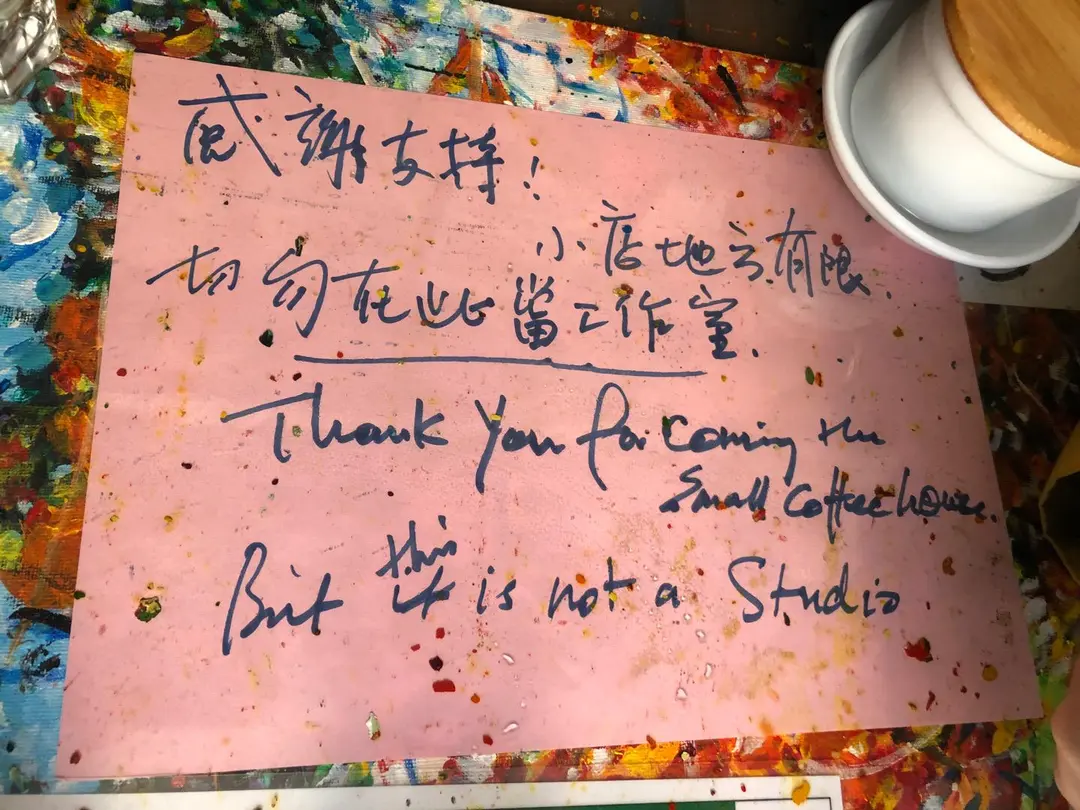 感謝支持!
小店地方有限.
切勿在此當工作室.
Thank you for coming the
small coffee house.
But this is not a Studio